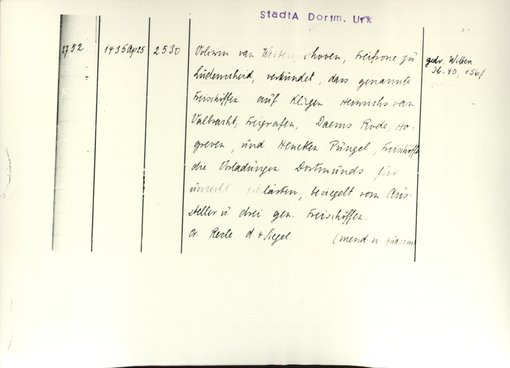 StadtA Dortm. Urk
2752 1435 Apr 25 2530
van hoven, Freifrone zu
Lüdenscheid, verkündet, dass genannte
Freischöffen auf Klagen Heinrichs van
Valbracht, Freigrafen, Daems Rode,
greven, und Heneken Püngel, Freischöffen
die Vorladungen Dortmunds für
unrecht erklärten, besiegelt vom Aus-
steller u drei gen. Freischöffen.
Or. Reste d 4 Siegel.
gedr.
Jb. 40, 156f